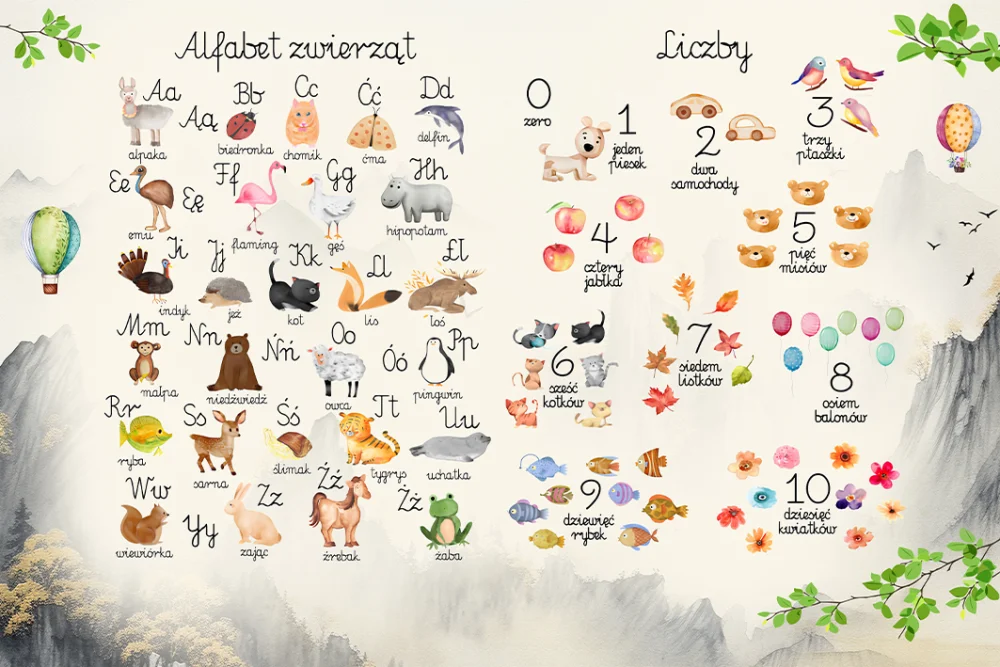 Alfabet zwierząt
Aa
alpaka
Ąą
Bb
biedronka
Cc
chomik
Ćć
ćma
Dd
delfin
Ee
emu
Ęę
Ff
flaming
Gg
gęś
Hh
hipopotam
Ii
indyk
Jj
jeż
Kk
kot
Ll
lis
Łł
łoś
Mm
małpa
Nn
niedźwiedź
Ńń
Oo
owca
Óó
Pp
pingwin
Rr
ryba
Ss
sarna
Śś
ślimak
Tt
tygrys
Uu
uchatka
Ww
wiewiórka
Yy
Zz
zając
Źź
źrebak
Żż
żaba
Liczby
0
zero
1
jeden
piesek
2
dwa
samochody
3
trzy
ptaszki
4
cztery
jabłka
5
pięć
misiów
6
sześć
kotków
7
siedem
listków
8
osiem
balonów
9
dziewięć
rybek
10
dziesięć
kwiatków